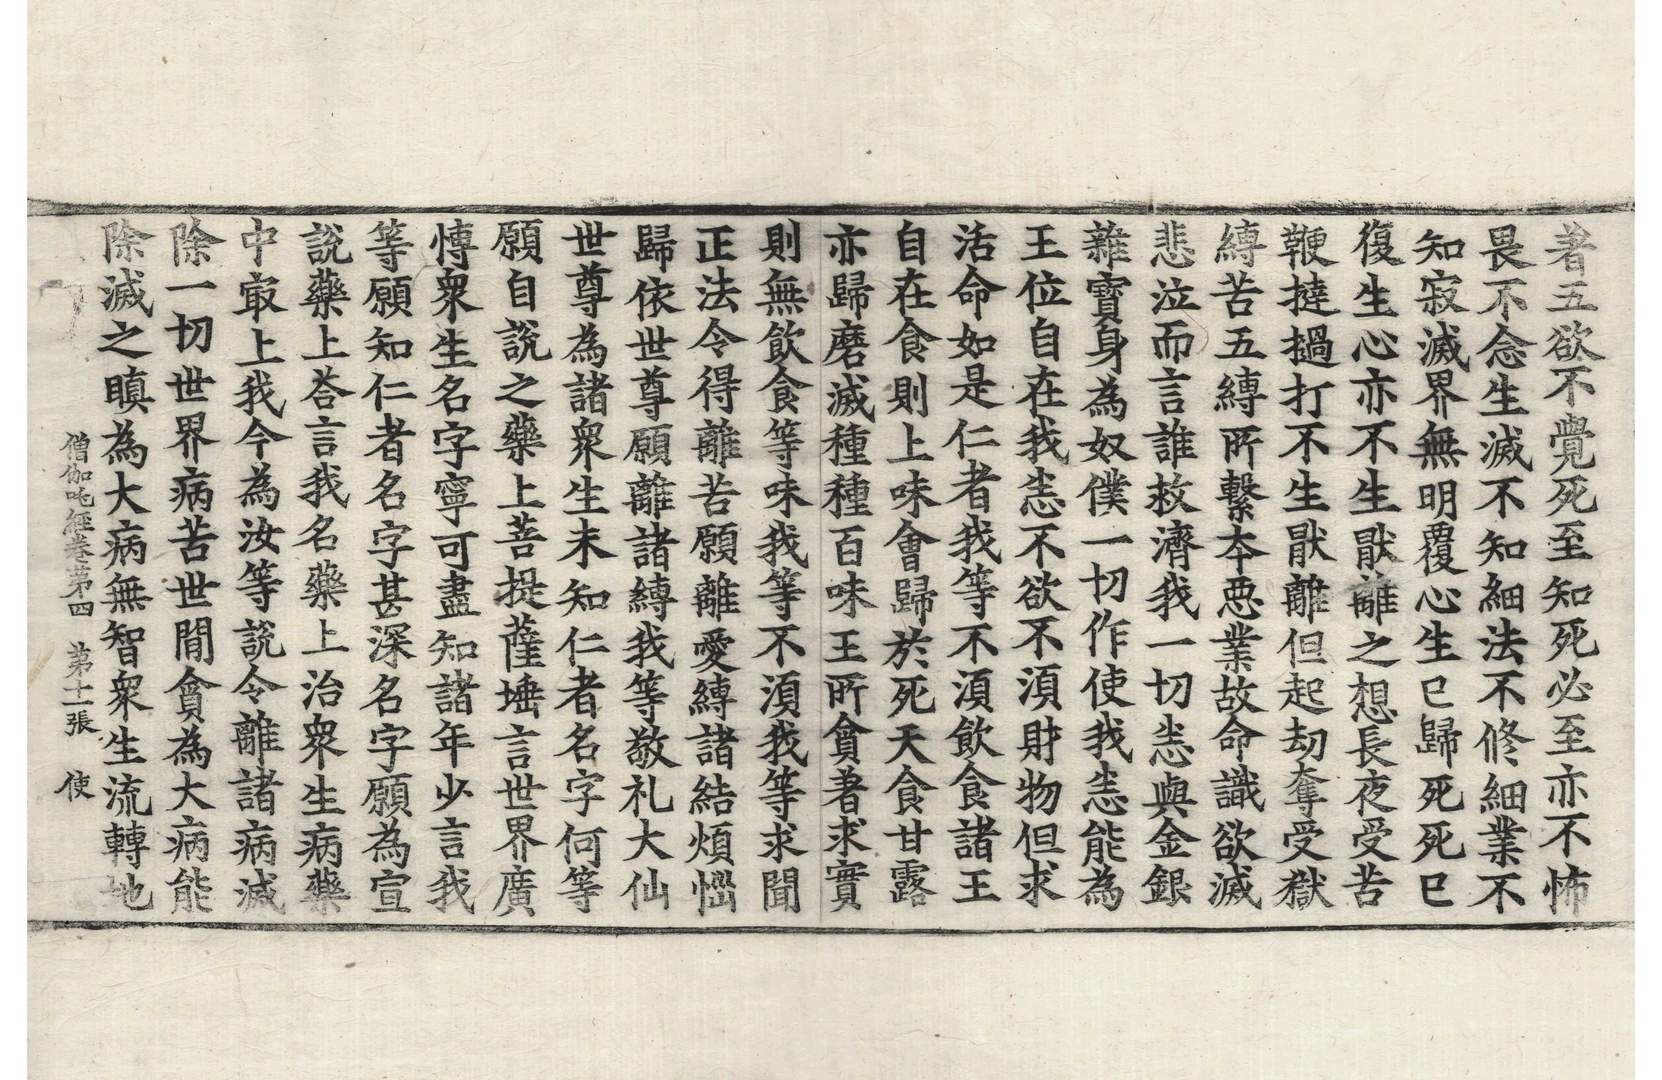 著五欲不覺死至知死必至亦不怖
畏不念生滅不知細法不修細業不
知寂滅界無明覆心生已歸死死已
復生心亦不生猒離之想長夜受苦
鞭撻撾打不生猒離但起劫奪受獄
縛苦五縛所繫夲惡業故命識欲滅
悲泣而言誰救濟我一切恙與金銀
雜寶身為奴僕一切作使我恙能為
王位自在我恙不欲不湏財物但求
活命如是仁者我等不湏飲食諸王
自在食則上味會歸於死天食甘露
亦歸磨滅種種百味王所貪著求實
則無飲食等味我等不湏我等求聞
正法令得離苦願離愛縛諸結煩惱
歸依世尊願離諸縛我等敬礼大仙
世尊為諸衆生未知仁者名字何等
願自說之藥上菩提薩埵言世界廣
愽衆生名字寧可盡知諸年少言我
等願知仁者名字甚深名字願為宣
說藥上荅言我名藥上治衆生病藥
中㝡上我今為汝等說令離諸病滅
除一切世界病苦世閒貪為大病能
除滅之瞋為大病無智衆生流轉地
僧伽吒經卷第四　第十一張　使